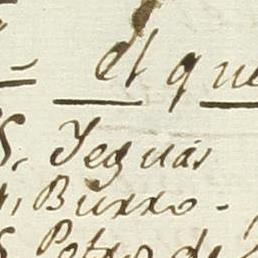 el que
Yeguas
Burro -
Potro de